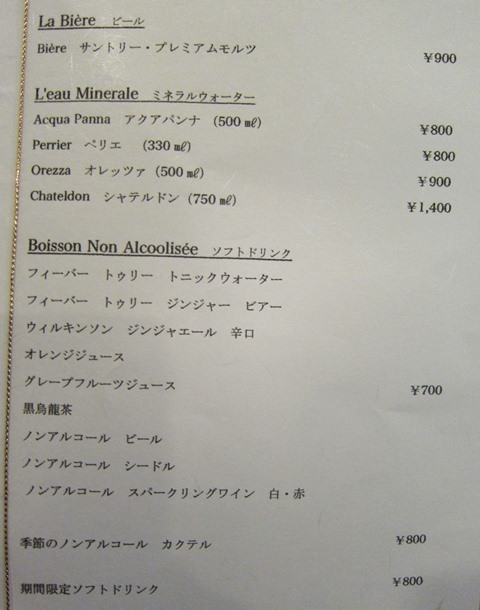 La Bière ビール
Bière サントリー・プレミアムモルツ ¥900
L'eau Minerale ミネラルウォーター
Acqua Panna アクアパンナ (500㎖) ¥800
Perrier ペリエ (330㎖) ¥800
Orezza オレッツァ (500㎖) ¥900
Chateldon シャテルドン (750㎖) ¥1,400
Boisson Non Alcoolisée ソフトドリンク
フィーバー トゥリー トニックウォーター
フィーバー トゥリー ジンジャー ビアー
ウィルキンソン ジンジャエール 辛口
オレンジジュース
グレープフルーツジュース ¥700
黒烏龍茶
ノンアルコール ビール
ノンアルコール シードル
ノンアルコール スパークリングワイン 白・赤
季節のノンアルコール カクテル ¥800
期間限定ソフトドリンク ¥800